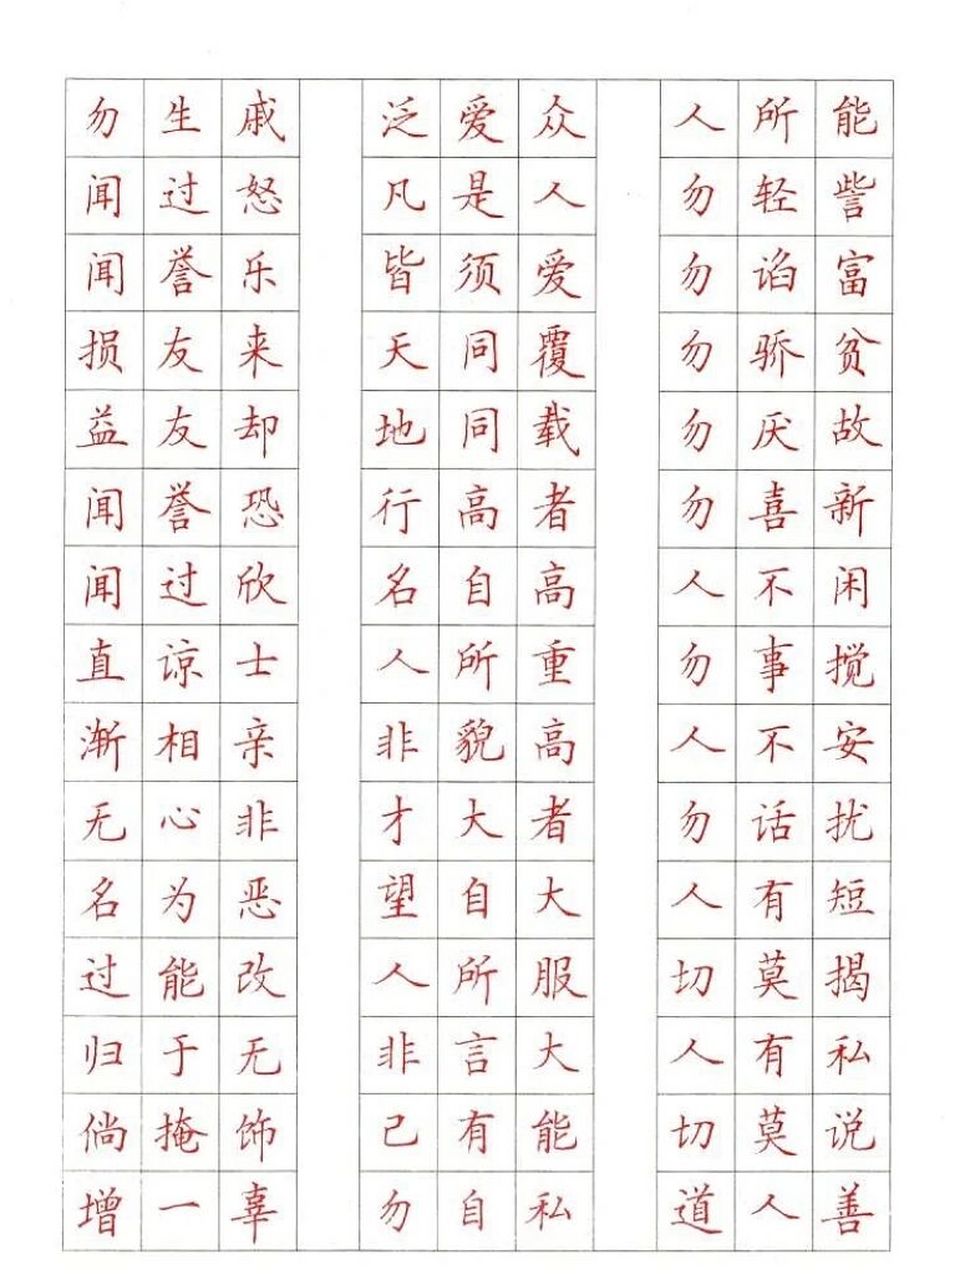 勿生戚
闻过怒
闻誉乐
损友来
益友却
闻誉恐
闻过欣
直谅士
渐相亲
无心非
名为恶
过能改
归于无
倘掩饰
增一辜
泛爱众
凡是人
皆须爱
天同覆
地同载
行高者
名自高
人所重
非貌高
才大者
望自大
人所服
非言大
己有能
勿自私
人所能
勿轻訾
勿谄富
勿骄贫
勿厌故
勿喜新
人不闲
勿事搅
人不安
勿话扰
人有短
切莫揭
人有私
切莫说
道人善